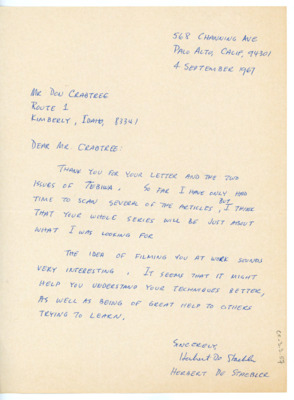 568 CHANNING AVE
PALO ALTO, CALIF, 94301
4 SEPTEMBER 1967
MR DON CRABTREE
ROUTE 1
KIMBERLY, IDAHO, 83341
DEAR MR. CRABTREE:
THANK YOU FOR YOUR LETTER AND THE TWO
ISSUES OF TEBIWA. SO FAR I HAVE ONLY HAD
TIME TO SCAN SEVERAL OF THE ARTICLES, BUT I THINK
THAT YOUR WHOLE SERIES WILL BE JUST ABOUT
WHAT I WAS LOOKING FOR
THE IDEA OF FILMING YOU AT WORK SOUNDS
VERY INTERESTING. IT SEEMS THAT IT MIGHT
HELP YOU UNDERSTAND YOUR TECHNIQUES BETTER,
AS WELL AS BEING OF GREAT HELP TO OTHERS
TRYING TO LEARN.
SINCERELY,
Herbert De Staebler
HERBERT DE STAEBLER